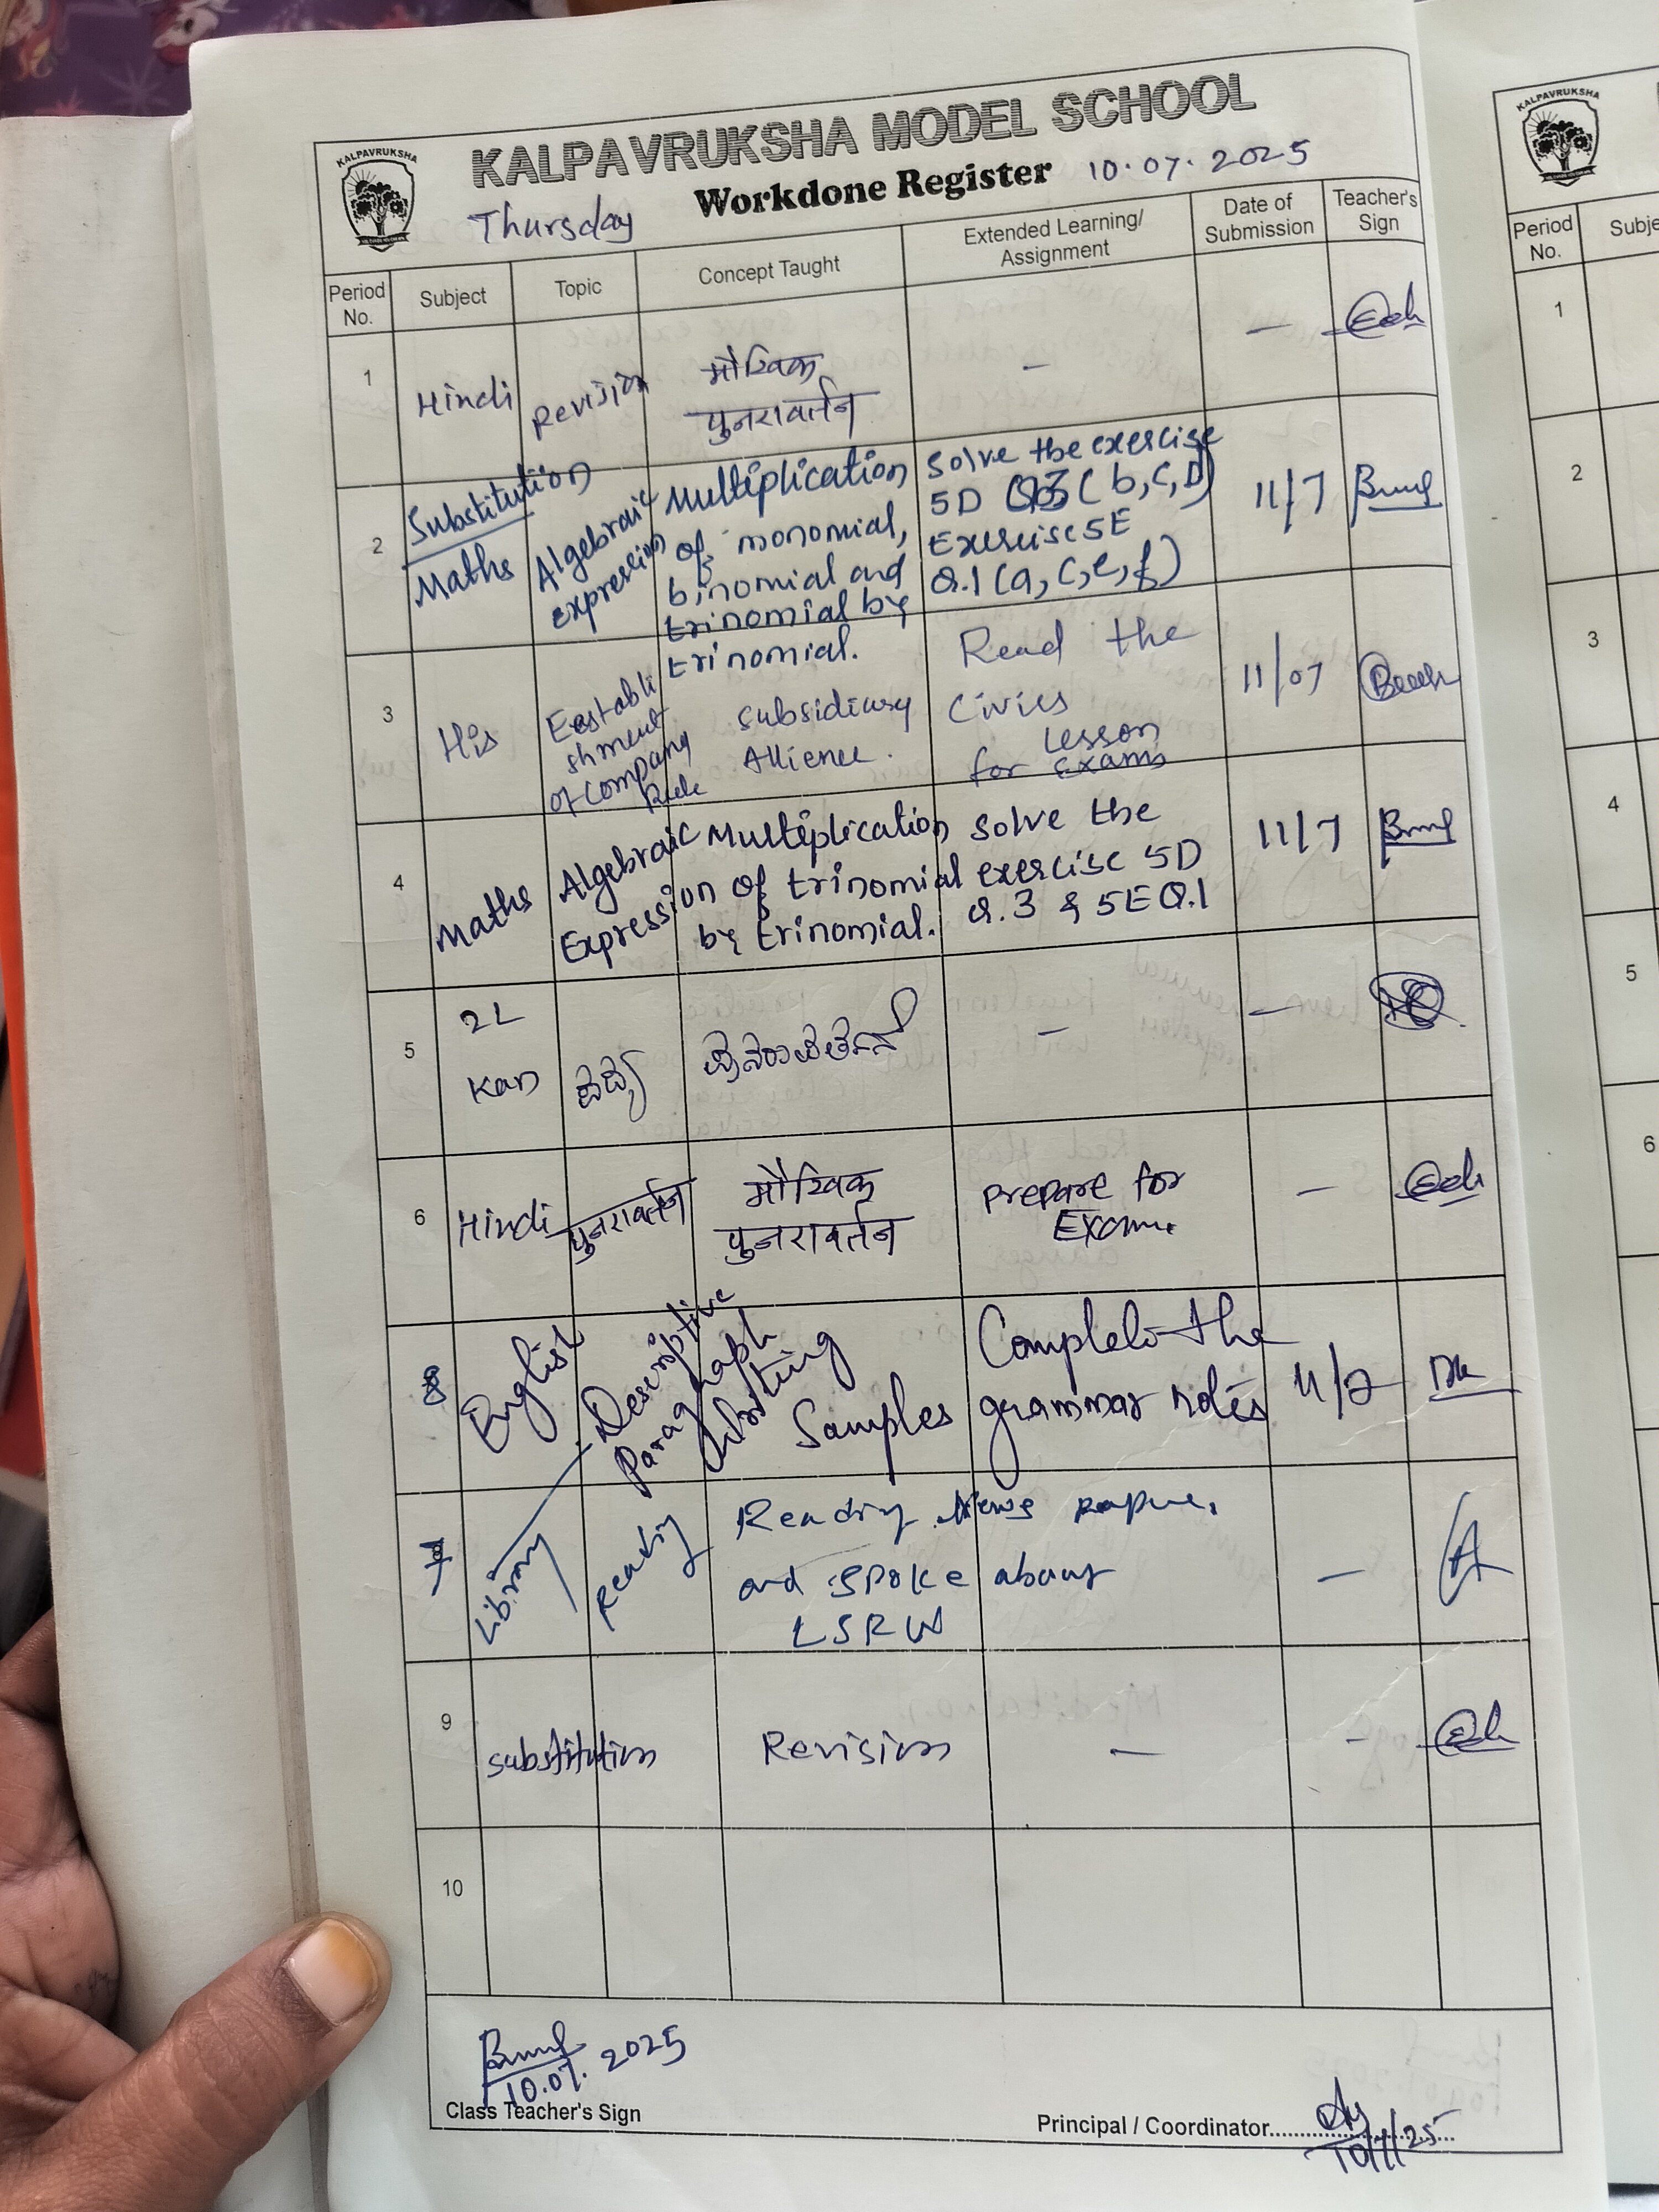 KALPAVRUKSHA
KALPAVRUKSHA MODEL SCHOOL
Workdone Register 10.07.2025
Thursday
Period No.
Subject
Topic
Concept Taught
Extended Learning/ Assignment
Date of Submission
Teacher's Sign
1
Hindi
Revision
मौखिक
पुनरावर्तन
—
—
2
Substitution
Maths
Algebraic
expression
Multiplication
of monomial,
binomial and
trinomial by
trinomial.
Solve the exercise
5D Q3 (b, c, D)
Exercise 5E
Q.1 (a, c, e, f)
11/7
3
His
Eestabli
shment
of Company
Rule
Subsidiary
Allience.
Read the
Civics
Lesson
for exams
11/07
4
Maths
Algebraic
Expression
Multiplication
of trinomial
by trinomial.
Solve the
exercise 5D
Q.3 & 5E Q.1
11/7
5
2L
Kan
ಪದ್ಯ
ಪುನರಾವರ್ತನೆ
—
—
6
Hindi
पुनरावर्तन
मौखिक
पुनरावर्तन
prepare for
Exam.
—
8
English
Descriptive
Paragraph
Writing
Samples
Complete the
grammar notes
11/7
7
Library
Reading
Reading News paper.
and spoke about
LSRW
—
9
substitution
Revision
—
—
10
10.07.2025
Class Teacher's Sign
Principal / Coordinator
10/7/25
KALPAVRUKSHA
Period No.
Subje
1
2
3
4
5
6